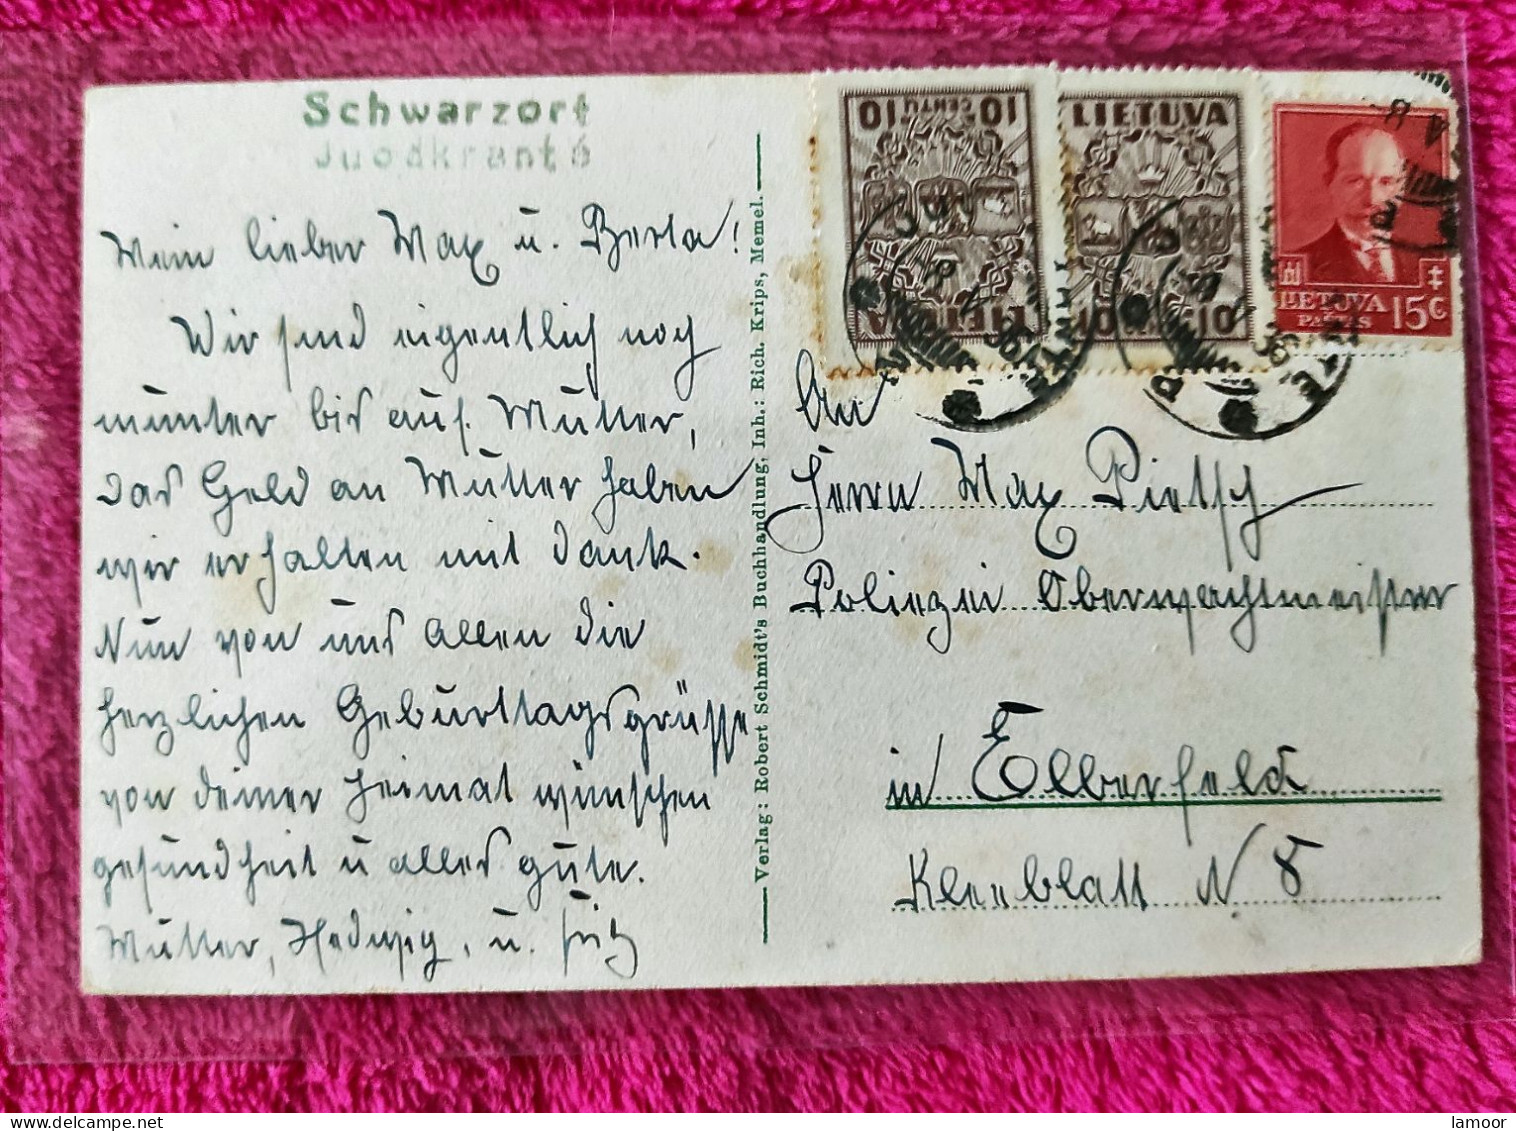 Schwarzort
Juodkrantė
Mein lieber Max u. Berta!
Wir sind eigentlich noch
munter bis auf Mutter,
das Geld an Mutter haben
wir erhalten mit Dank.
Nun von uns allen die
herzlichen Geburttagsgrüsse
von deiner Heimat wünschen
gesundheit u alles gute.
Mutter, Hedwig, u. Fritz
Verlag: Robert Schmidt's Buchhandlung, Inh.: Rich. Krips, Memel.
10 CENTŲ 10
LIETUVA
LIETUVA
10 10
LIETUVA
PAŠTAS 15C
An
Herrn Max Pietsch
Polizei Oberwachtmeister
in Elberfeld
Kleeblatt N 8
lamoor